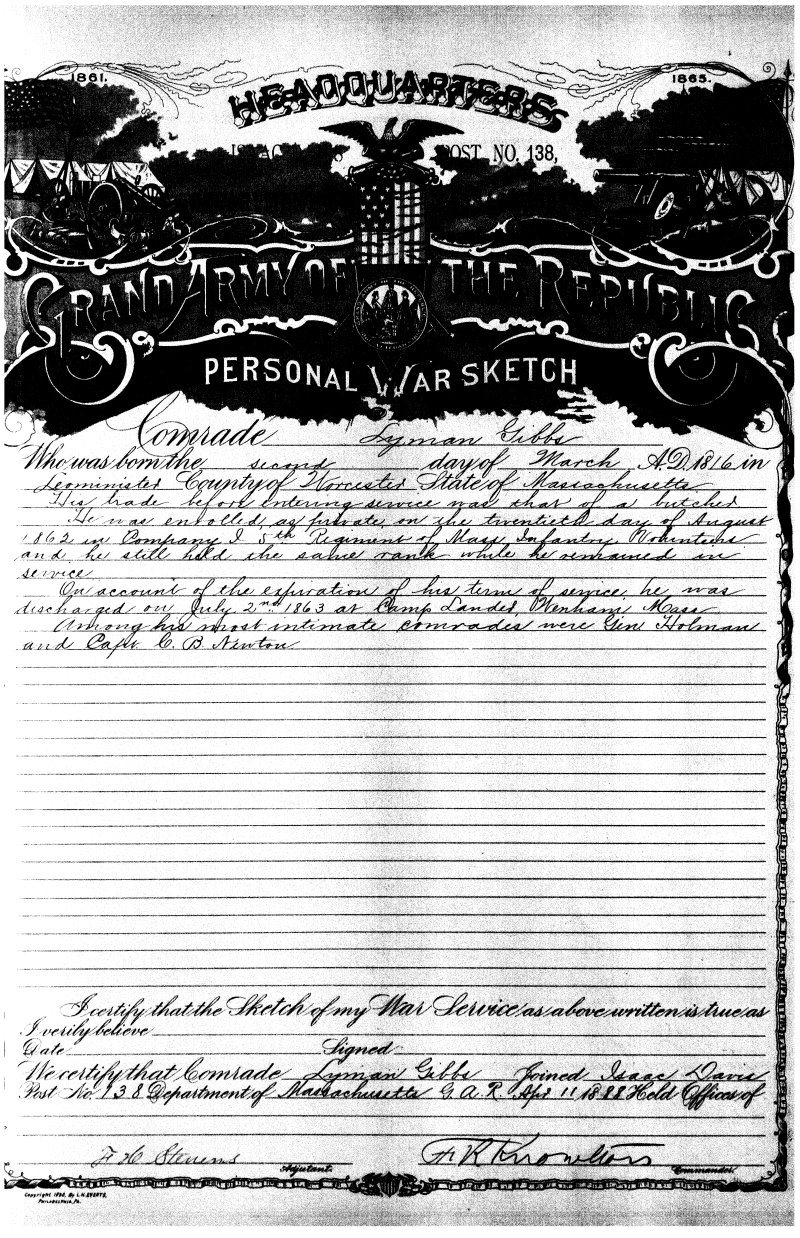 1861.
1865.
HEADQUARTERS
POST NO. 138,
GRAND ARMY OF THE REPUBLIC
PERSONAL WAR SKETCH
Comrade Lyman Gibbs
Who was born the second day of March A.D. 1816 in
Leominister County of Worcester State of Massachusetts
His trade before entering service was that of a butcher
He was enrolled as private, on the twentieth day of August
1862 in Company I 5th Regiment of Mass Infantry Volunteers
and he still held the same rank while he remained in
service
On account of the expiration of his term of service, he was
discharged on July 2nd 1863 at Camp Lander, Wenham Mass
Among his most intimate comrades were Holman
and Capt. C. B. Newton
I certify that the Sketch of my War Service as above written is true as
I verily believe
Date Signed
We certify that Comrade Lyman Gibbs Joined Isaac Davis
Post No. 138 Department of Massachusetts G. A. R. Apr 11 1888 Held Offices of
F H Stevens
Adjutant.
F R Knowlton
Commander.
Copyright 1890, By L.H. EVERTS,
PHILADELPHIA, PA.